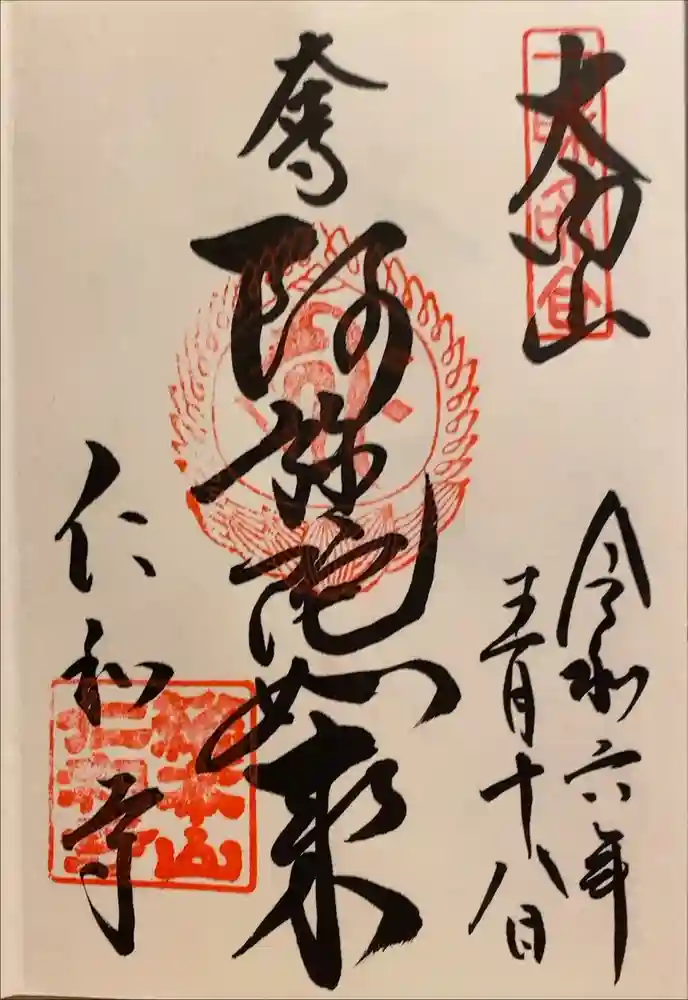 大内山
阿弥陀如来
仁和寺
令和六年
月十八日
総本山
仁和寺